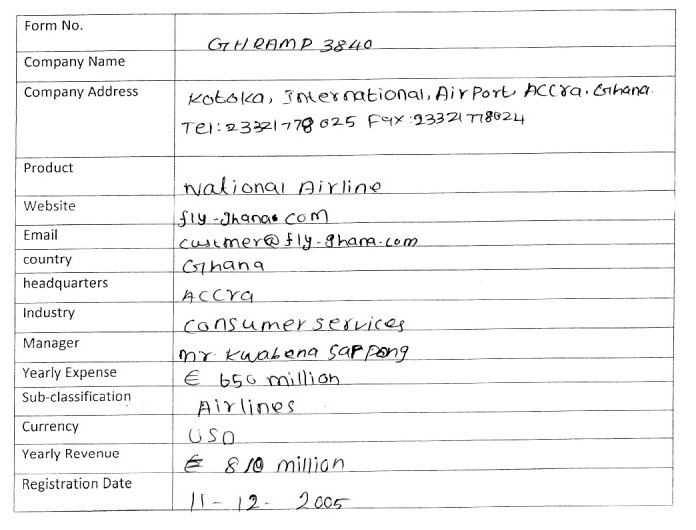 Form No. GHRAMP 3840
Company Name
Company Address Kotoka, International, AirPort, ACCra. Ghana.
Tel: 23321778025 Fax: 23321778024
Product National Airline
Website fly-ghana.com
Email custmer@fly-ghana.com
country Ghana
headquarters ACCra
Industry Consumer services
Manager Mr. Kwabena Sarpong
Yearly Expense € 650 million
Sub-classification Airlines
Currency USD
Yearly Revenue € 810 million
Registration Date 11-12-2005